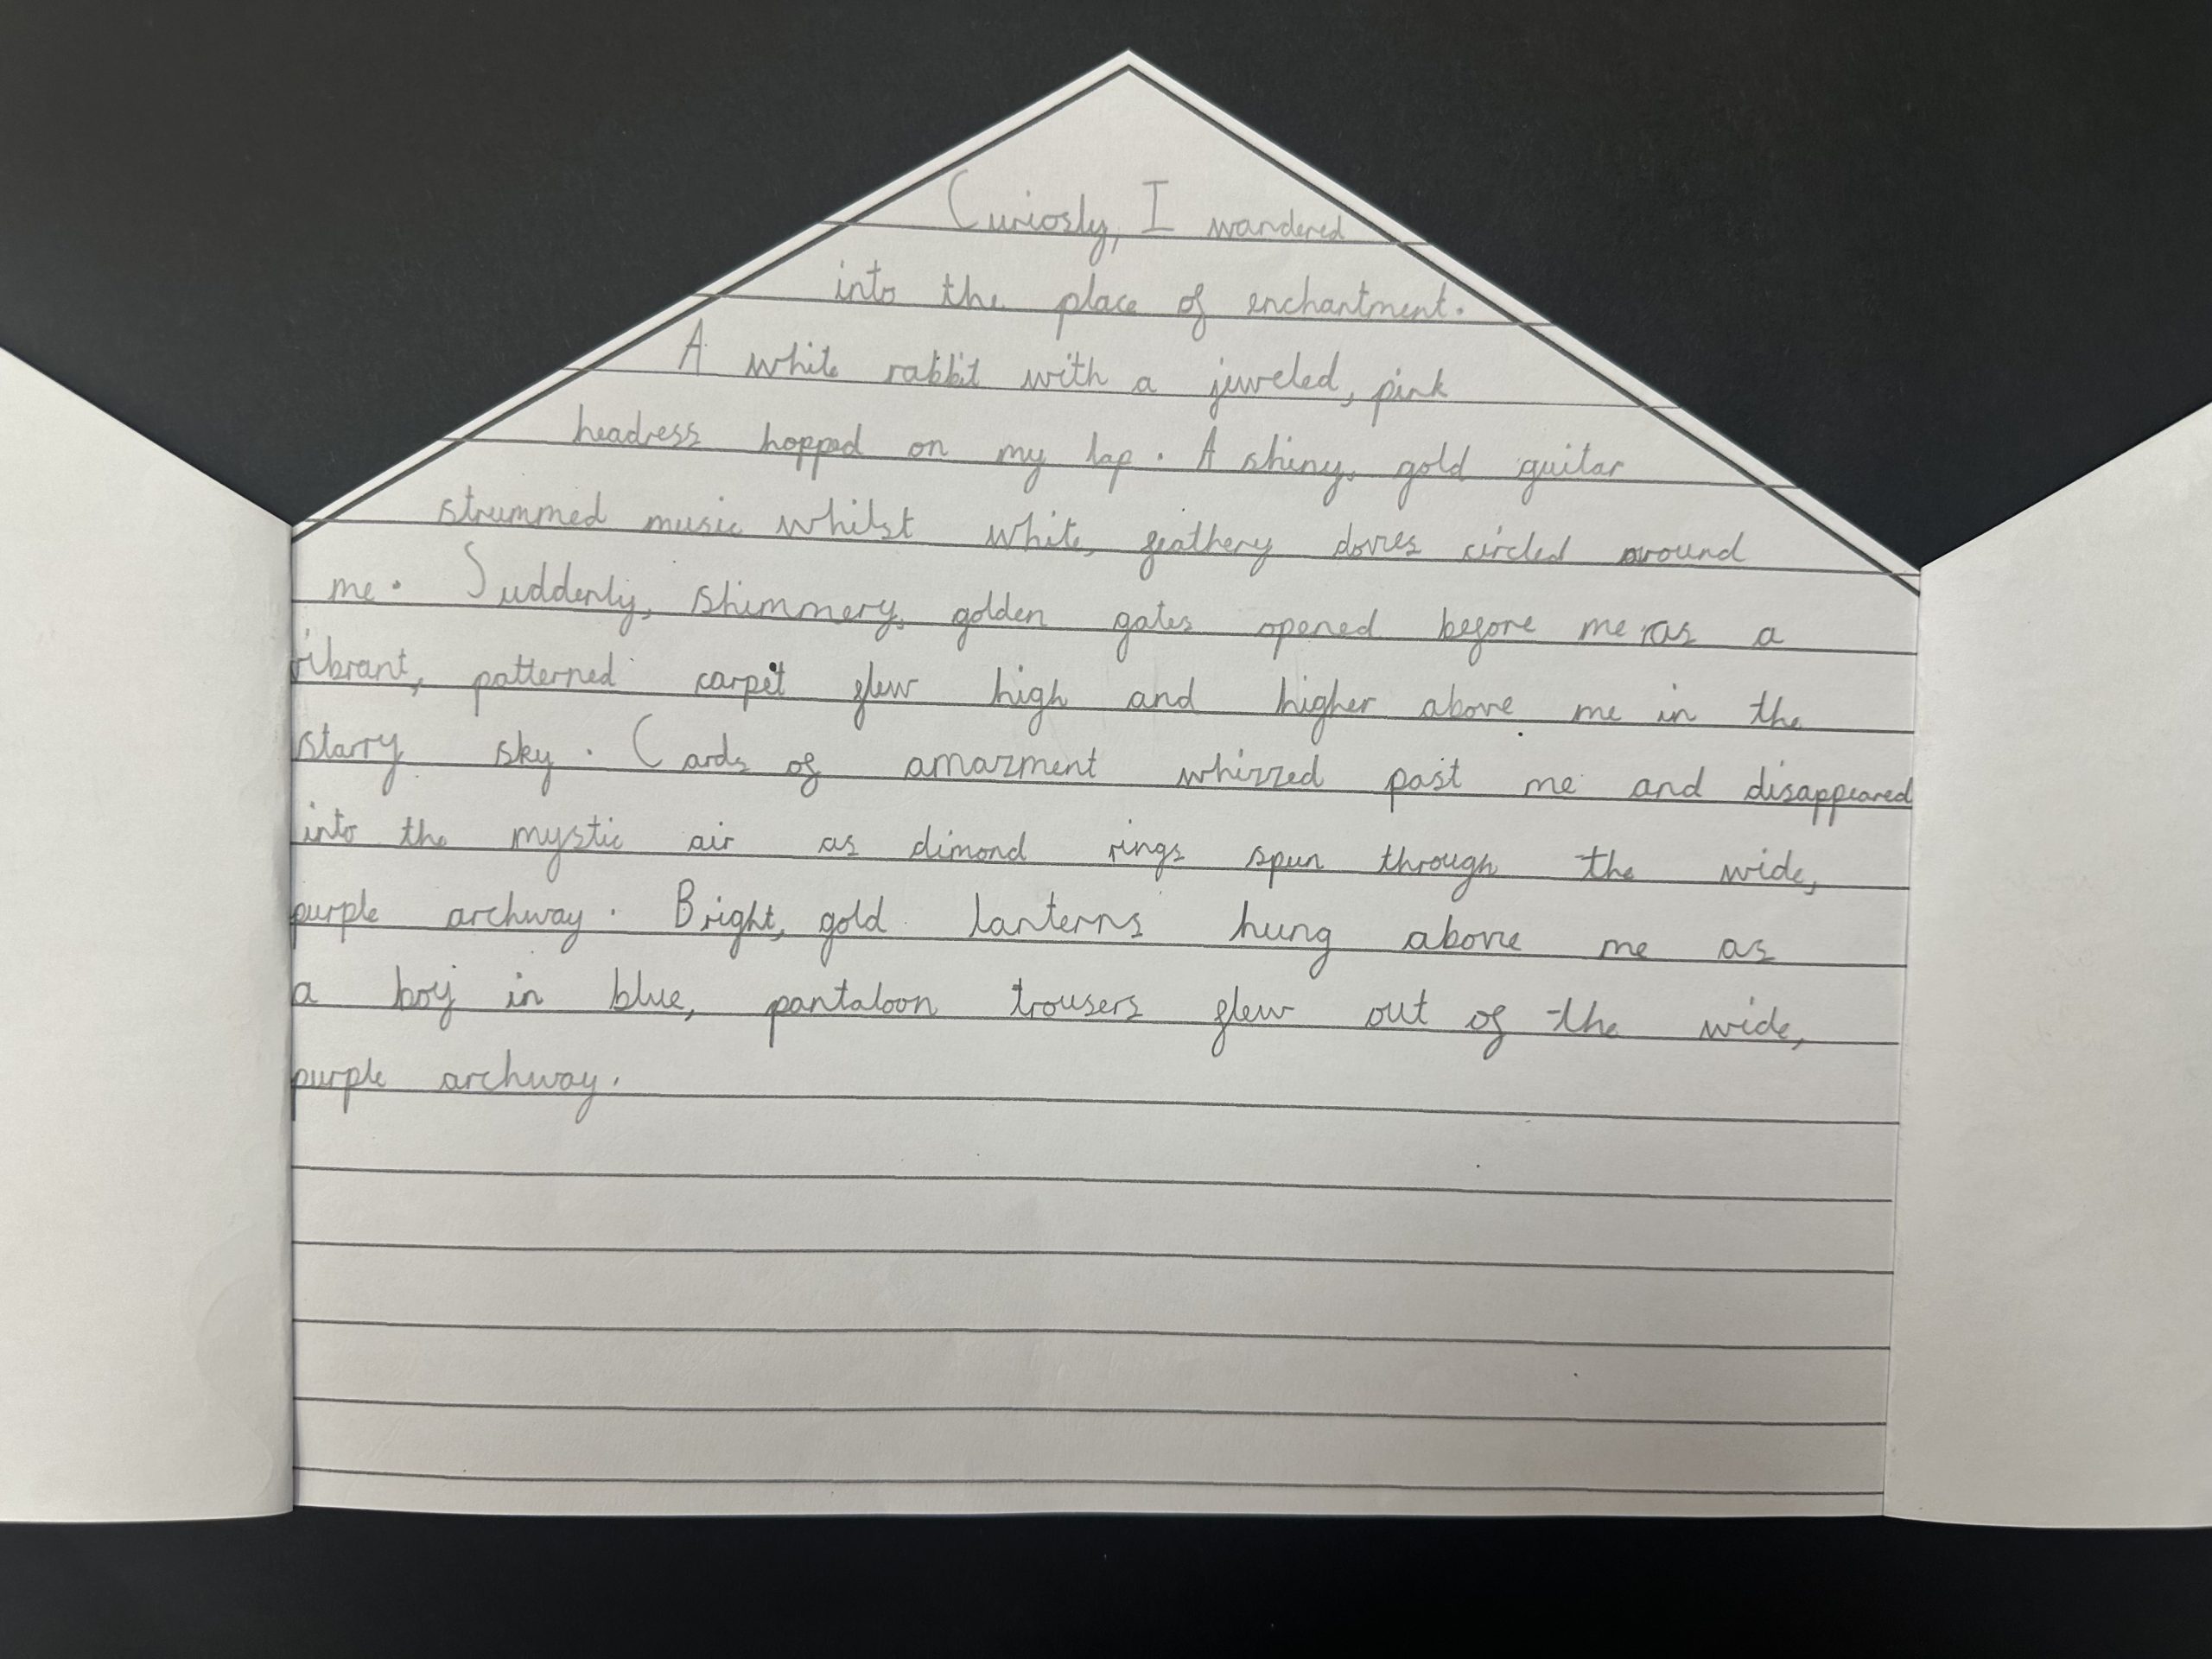 Curiosly, I wandered
into the place of enchantment.
A white rabbit with a jeweled, pink
headress hopped on my lap. A shiny, gold guitar
strummed music whilst white, feathery doves circled around
me. Suddenly, shimmery, golden gates opened before me as a
vibrant, patterned carpet flew high and higher above me in the
starry sky. Cards of amazment whizzed past me and disappeared
into the mystic air as dimond rings spun through the wide,
purple archway. Bright, gold lanterns hung above me as
a boy in blue, pantaloon trousers flew out of the wide,
purple archway.